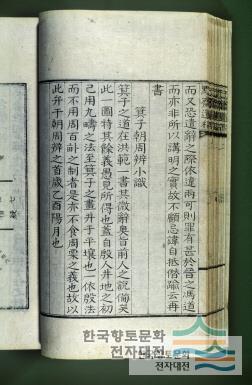 而又恐遺辭之際依違兩可則罪有甚於晉之馮道
而亦非所以講明之實故不顧忌諱自抵僭踰云再
書
箕子朝周辨小識
箕子之道在洪範一書其微辭奧旨前人之說備矣
此一圖特其餘義愚見所得也蓋自殷人井地之初
已用九疇之法至箕子之畫井于平壤也一依殷法
而不用周百畝之制者是亦不食周粟之義也故以
此弁于朝周辨之首歲乙酉陽月也
한국향토문화
전자대전
한국향토문화
전자대전